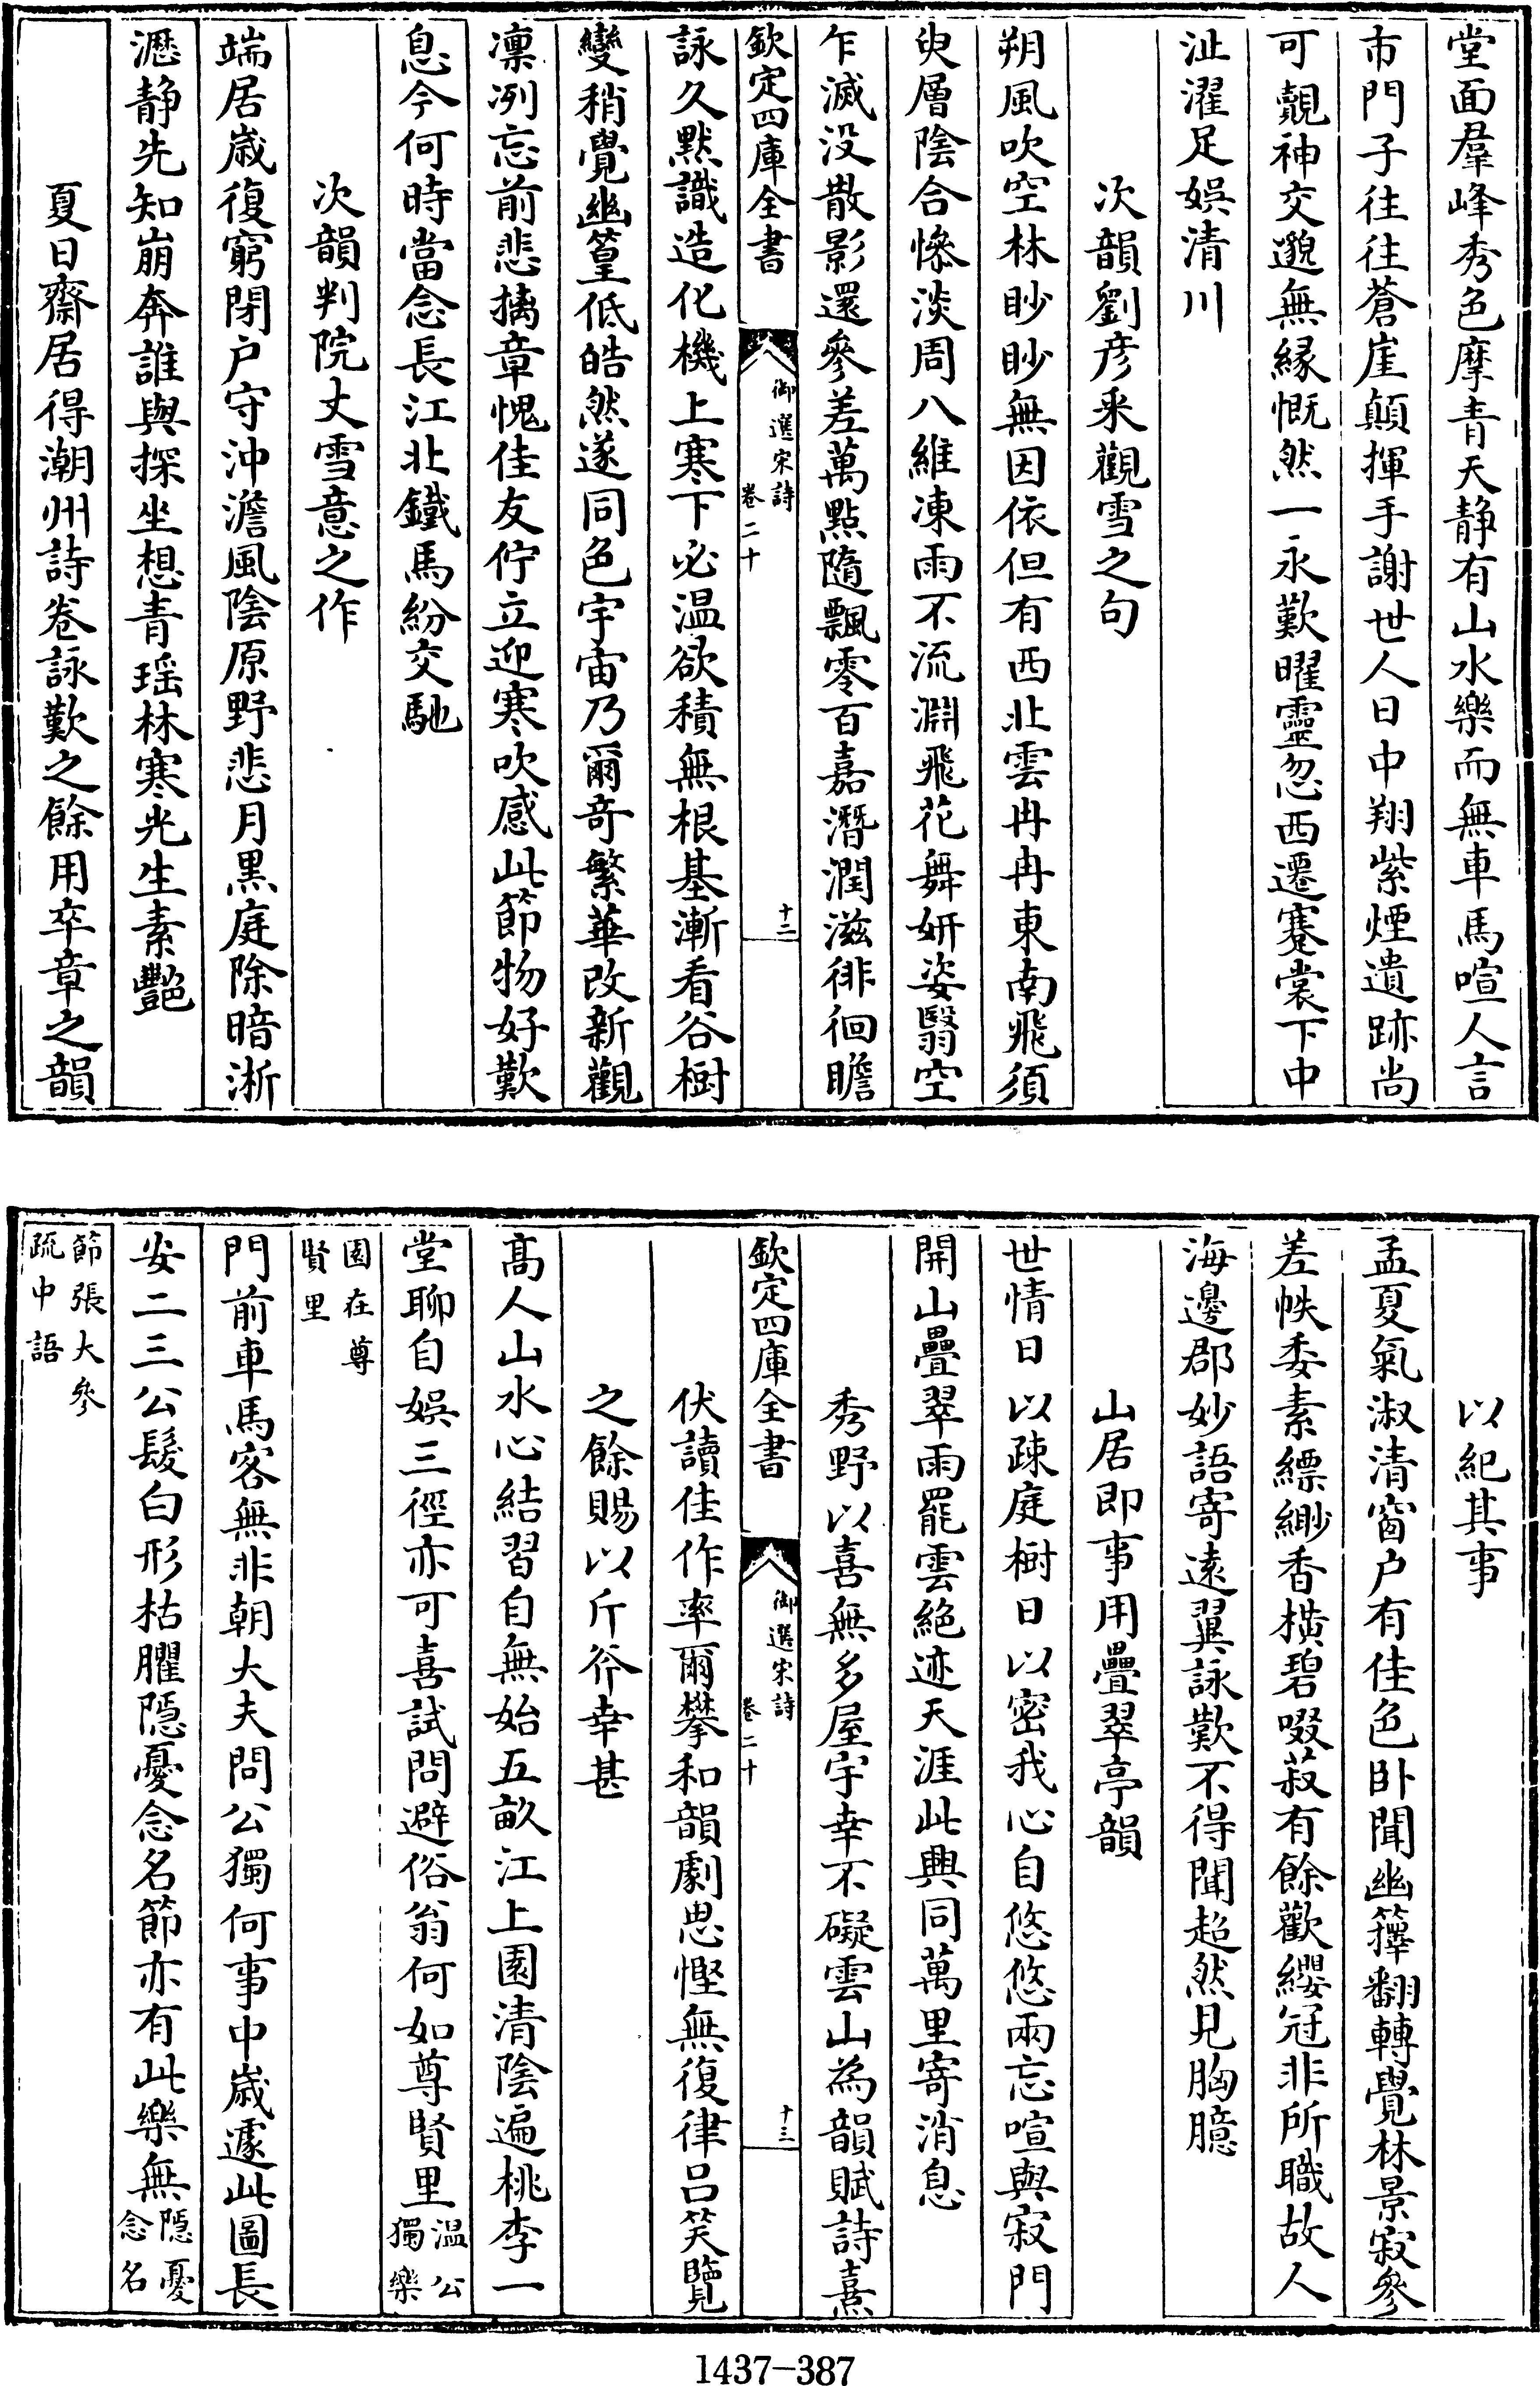 堂面羣峰秀色摩青天静有山水樂而無車馬喧人言
市門子往往蒼崖顛揮手謝世人日中翔紫煙遺跡尚
可覿神交邈無緣慨然一永歎曜靈忽西遷蹇裳下中
沚濯足娱清川
次韻劉彦采觀雪之句
朔風吹空林眇眇無因依但有西北雲冉冉東南飛須
臾層陰合慘淡周八維凍雨不流淵飛花舞妍姿翳空
乍滅没散影還參差萬點隨飄零百嘉潛潤滋徘徊瞻
欽定四庫全書
御選宋詩
卷二十
十二
詠久默識造化機上寒下必温欲積無根基漸看谷樹
變稍覺幽篁低皓然遂同色宇宙乃爾奇繁華改新觀
凛冽忘前悲摛章愧佳友佇立迎寒吹感此節物好歎
息今何時當念長江北鐵馬紛交馳
次韻判院丈雪意之作
端居歳復窮閉户守沖澹風陰原野悲月黒庭除暗淅
瀝静先知崩奔誰與探坐想青瑶林寒光生素艷
夏日齋居得潮州詩卷詠歎之餘用卒章之韻
以紀其事
孟夏氣淑清窗户有佳色卧聞幽籜翻轉覺林景寂參
差帙委素縹緲香横碧啜菽有餘歡纓冠非所職故人
海邊郡妙語寄遠翼詠歎不得聞超然見胸臆
山居即事用疊翠亭韻
世情日以疎庭樹日以密我心自悠悠兩忘喧與寂門
開山疊翠雨罷雲絶迹天涯此興同萬里寄消息
秀野以喜無多屋宇幸不礙雲山為韻賦詩熹
欽定四庫全書
御選宋詩
卷二十
十三
伏讀佳作率爾攀和韻劇思慳無復律吕笑覽
之餘賜以斤斧幸甚
髙人山水心結習自無始五畝江上園清陰遍桃李一
堂聊自娱三徑亦可喜試問避俗翁何如尊賢里温公獨樂
園在尊賢里
門前車馬客無非朝大夫問公獨何事中歳遽此圖長
安二三公髮白形枯臞隠憂念名節亦有此樂無隠憂念名
節張大參疏中語
1437-387